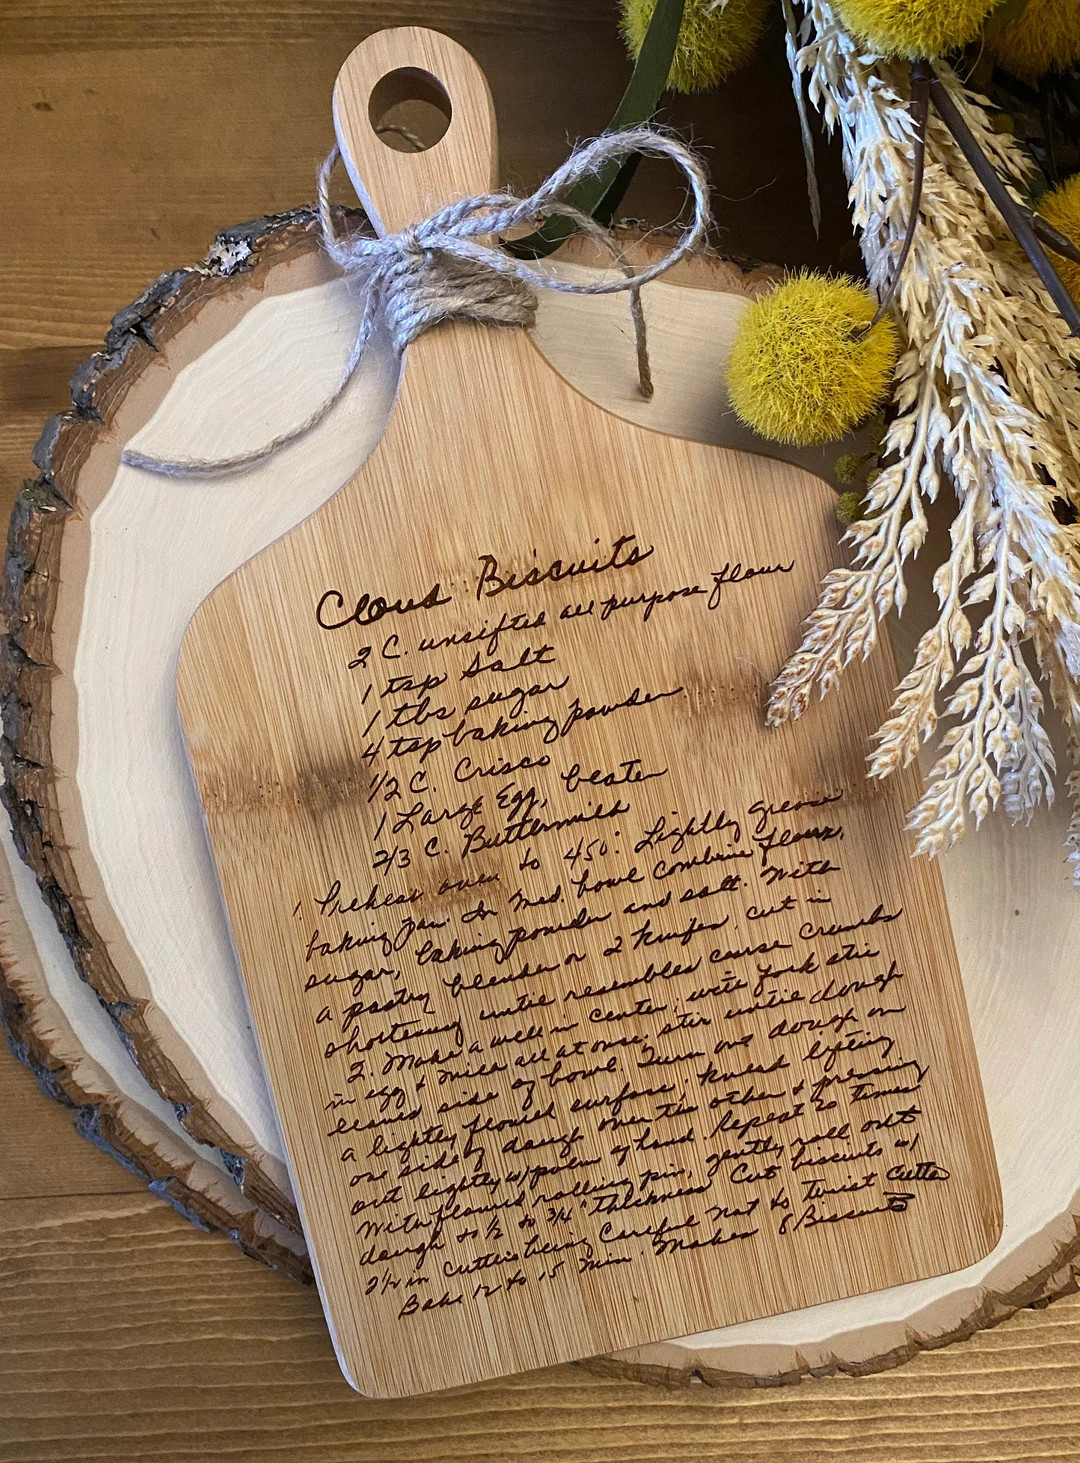 Cloud Biscuits
2 C. unsifted all purpose flour
1 tsp Salt
1 tbs sugar
4 tsp baking powder
1/2 C. Crisco
1 Large Egg, beaten
2/3 C. Buttermilk
1. Preheat oven to 450° Lightly grease
baking pan. In med. bowl combine flour,
sugar, baking powder and salt. With
a pastry blender or 2 knifes cut in
shortening until resembles coarse crumbs
2. Make a well in center, with fork stir
in egg & milk all at once; stir until dough
leaves side of bowl. Turn out dough on
a lightly floured surface; knead lifting
one side of dough over the other & pressing
out lightly w/ palm of hand. Repeat 20 times
With floured rolling pin, gently roll out
dough to 1/2 to 3/4" thickness Cut biscuits w/
2 1/2 in cutter being careful not to twist cutter
Bake 12 to 15 min. Makes 8 Biscuits